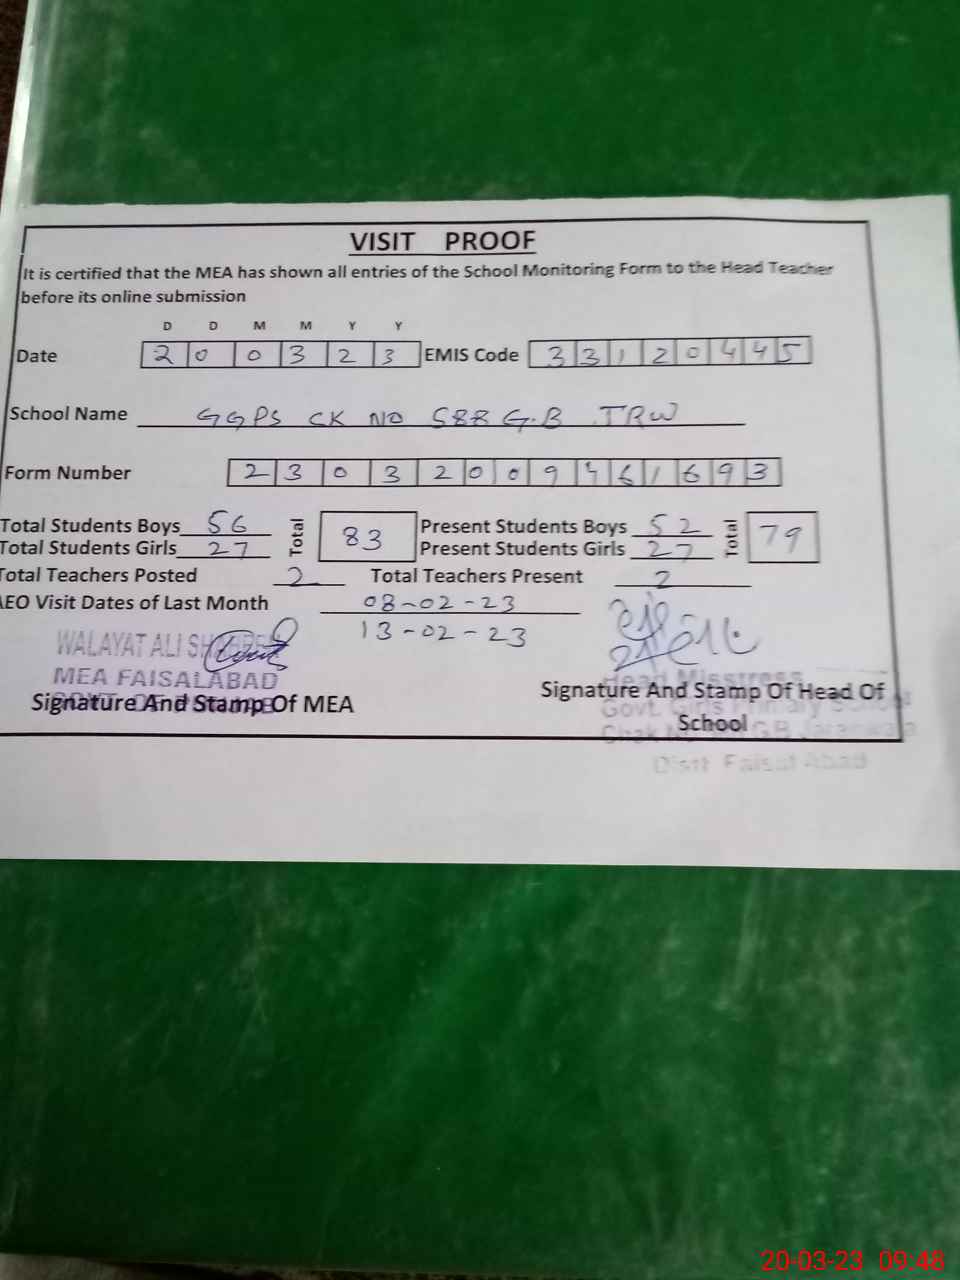 VISIT PROOF
It is certified that the MEA has shown all entries of the School Monitoring Form to the Head Teacher
before its online submission
D D M M Y Y
Date 2 0 0 3 2 3 EMIS Code 3 3 1 2 0 4 4 5
School Name GGPS CK NO 58R G.B JRW
Form Number 2 3 0 3 2 0 0 9 4 6 1 6 9 3
Total Students Boys 56 Total 83 Present Students Boys 52 Total 79
Total Students Girls 27 Present Students Girls 27
Total Teachers Posted 2 Total Teachers Present 2
AEO Visit Dates of Last Month 08-02-23
13-02-23
WALAYAT ALI
MEA FAISALABAD
Signature And Stamp Of MEA
Head Misstress
Signature And Stamp Of Head Of
Govt. Girls Primary School
School
Chak G.B Jaranwala
Distt Faisal Abad
20-03-23 09:48